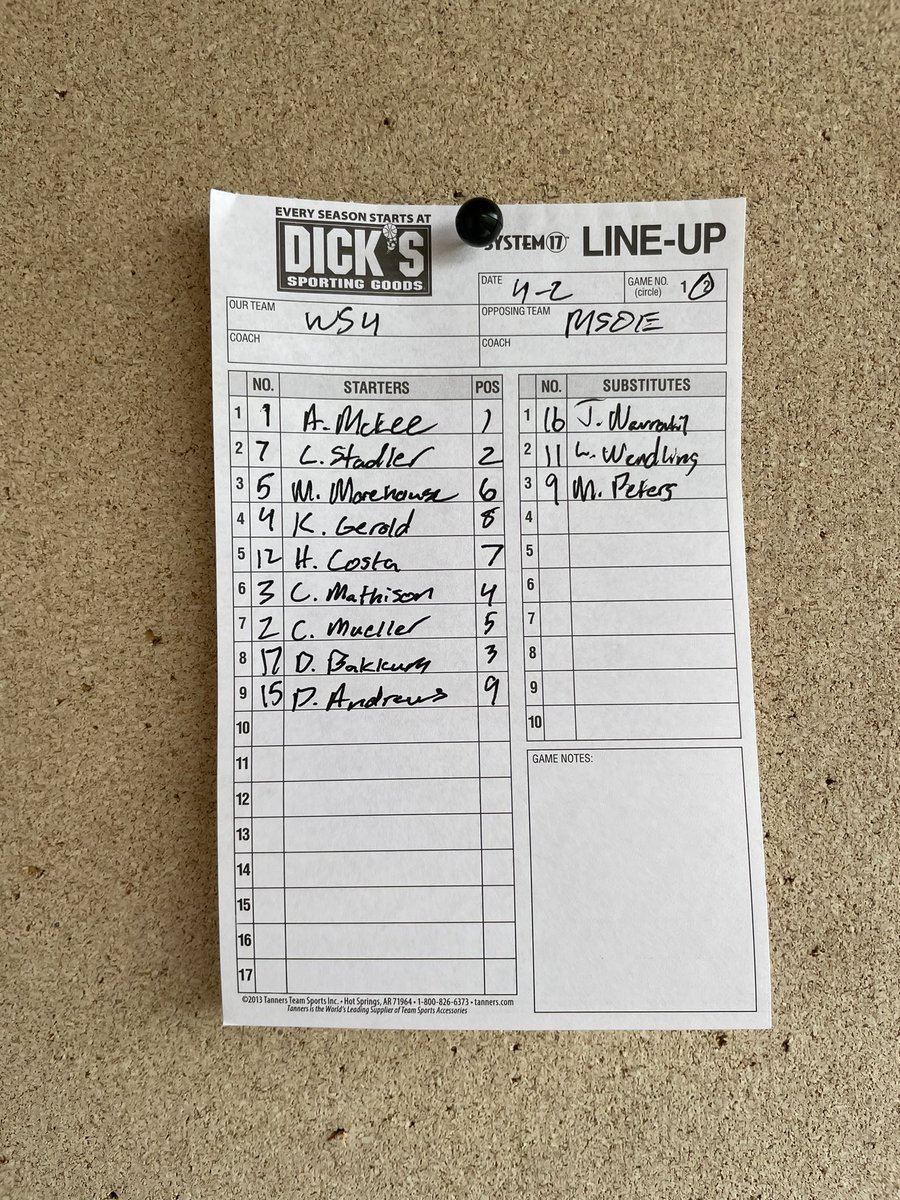 EVERY SEASON STARTS AT
DICK'S
SPORTING GOODS
SYSTEM 17 LINE-UP
DATE 4-2 GAME NO. (circle) 1 2
OUR TEAM WSU OPPOSING TEAM MSOE
COACH COACH
NO. STARTERS POS
1 1 A. McKee 1
2 7 C. Stadler 2
3 5 M. Morehouse 6
4 4 K. Gerold 8
5 12 H. Costa 7
6 3 C. Mathison 4
7 2 C. Mueller 5
8 17 D. Bakkum 3
9 15 D. Andrews 9
10
11
12
13
14
15
16
17
NO. SUBSTITUTES
1 16 J.
2 11 L. Wendling
3 9 M. Peters
4
5
6
7
8
9
10
GAME NOTES:
©2013 Tanners Team Sports Inc. • Hot Springs, AR 71964 • 1-800-826-6373 • tanners.com
Tanners is the World's Leading Supplier of Team Sports Accessories